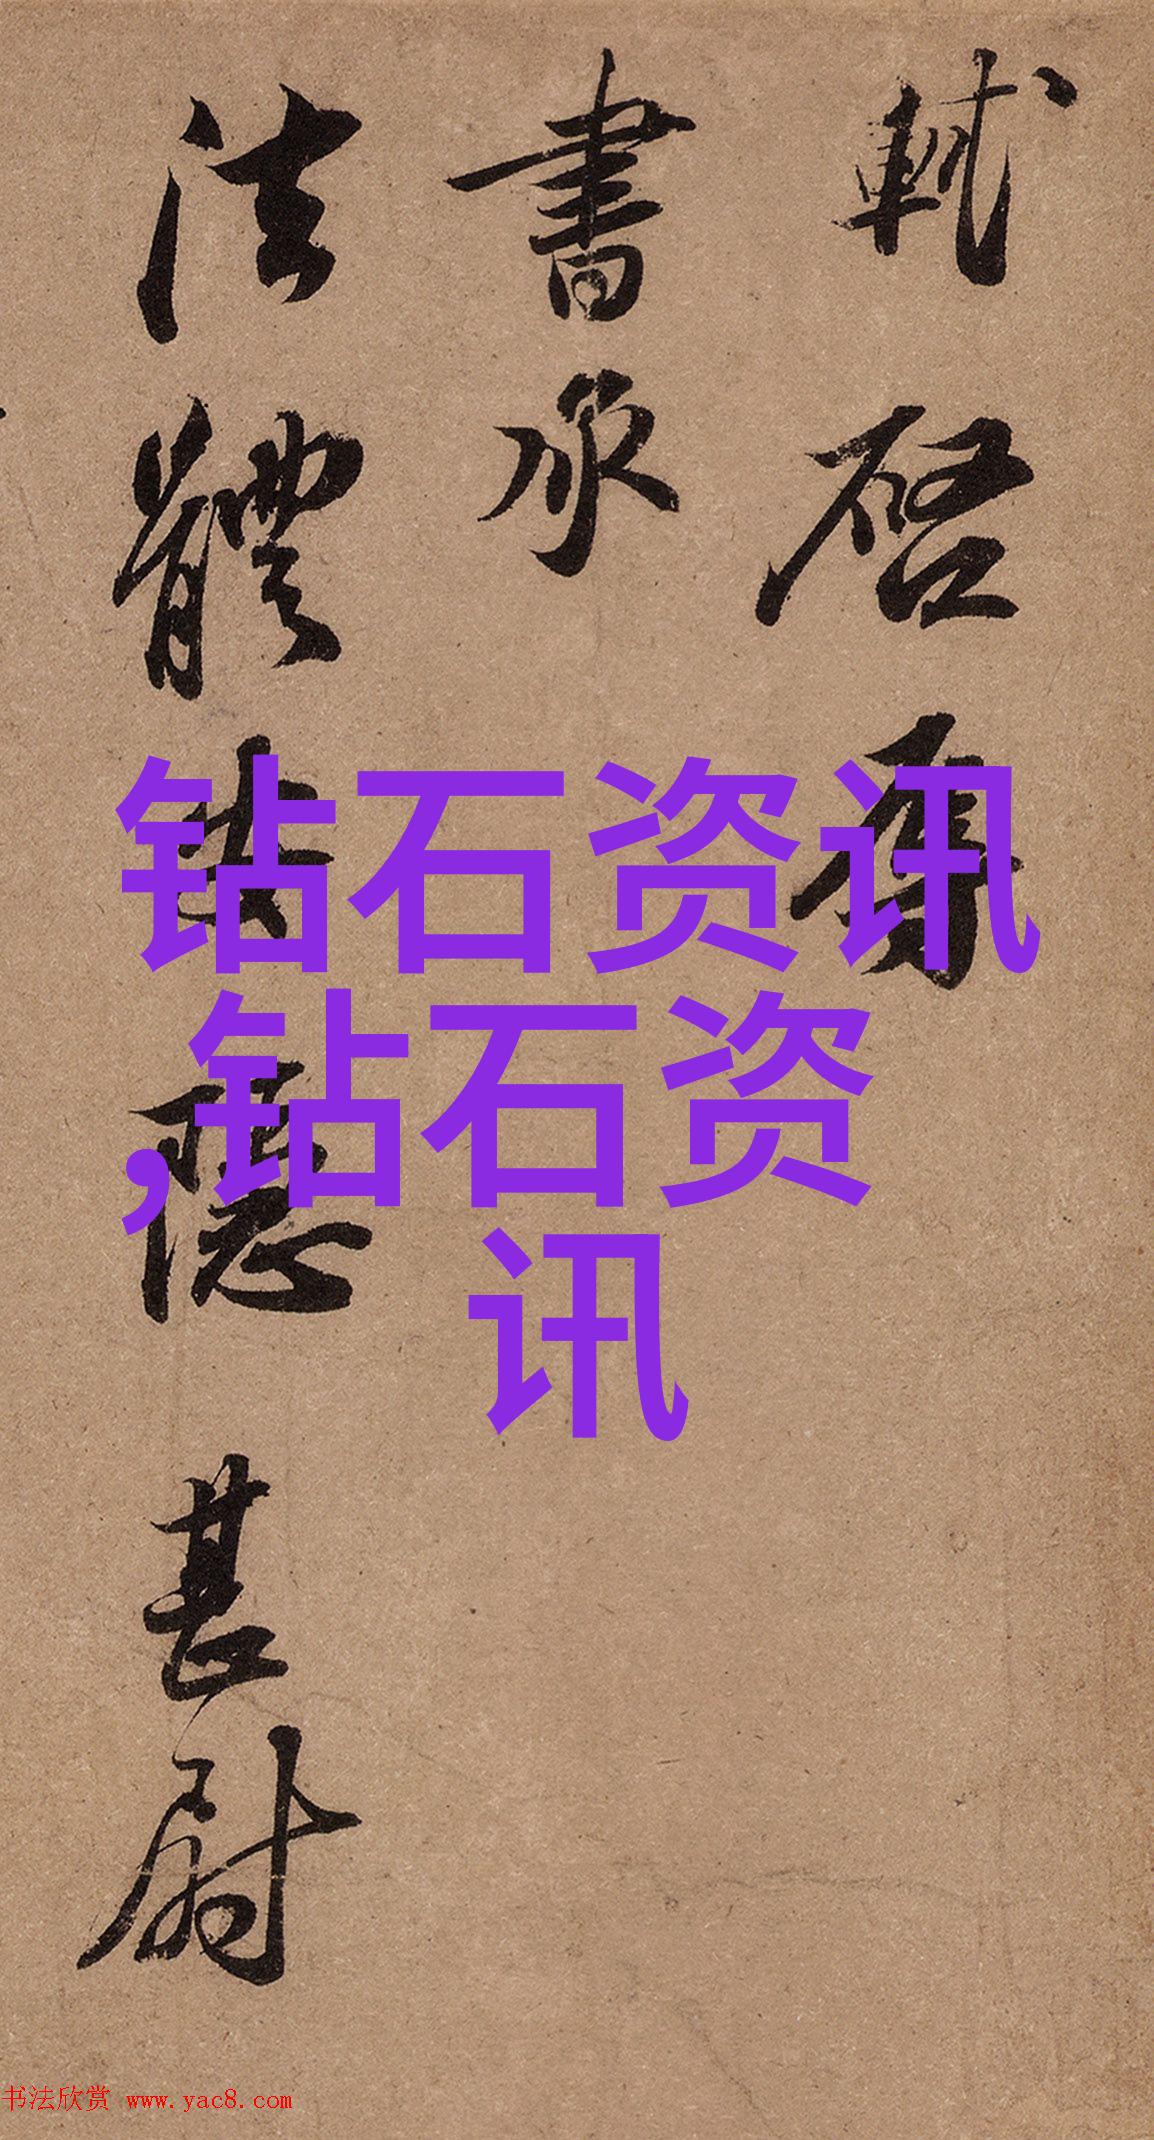 軾啓辱
書承
法體安隱甚尉
钻石资讯
,钻石资
讯
书法欣赏 www.yac8.com